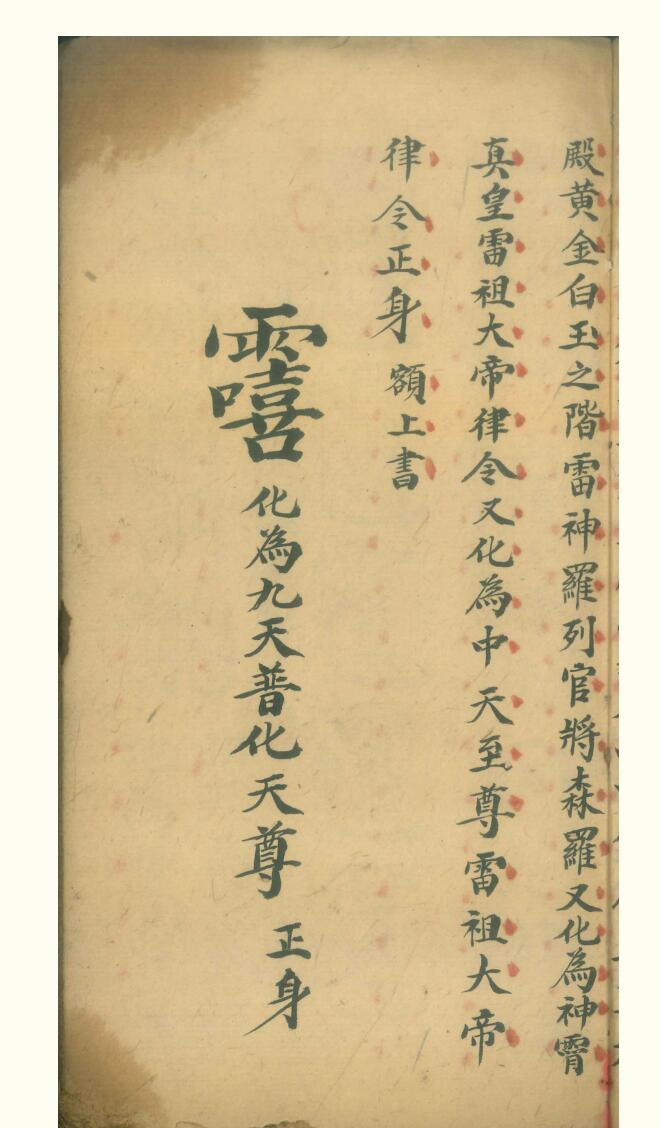 殿黄金白玉之階雷神羅列官將森羅又化為神霄
真皇雷祖大帝律令又化為中天至尊雷祖大帝
律令正身額上書
化為九天普化天尊正身